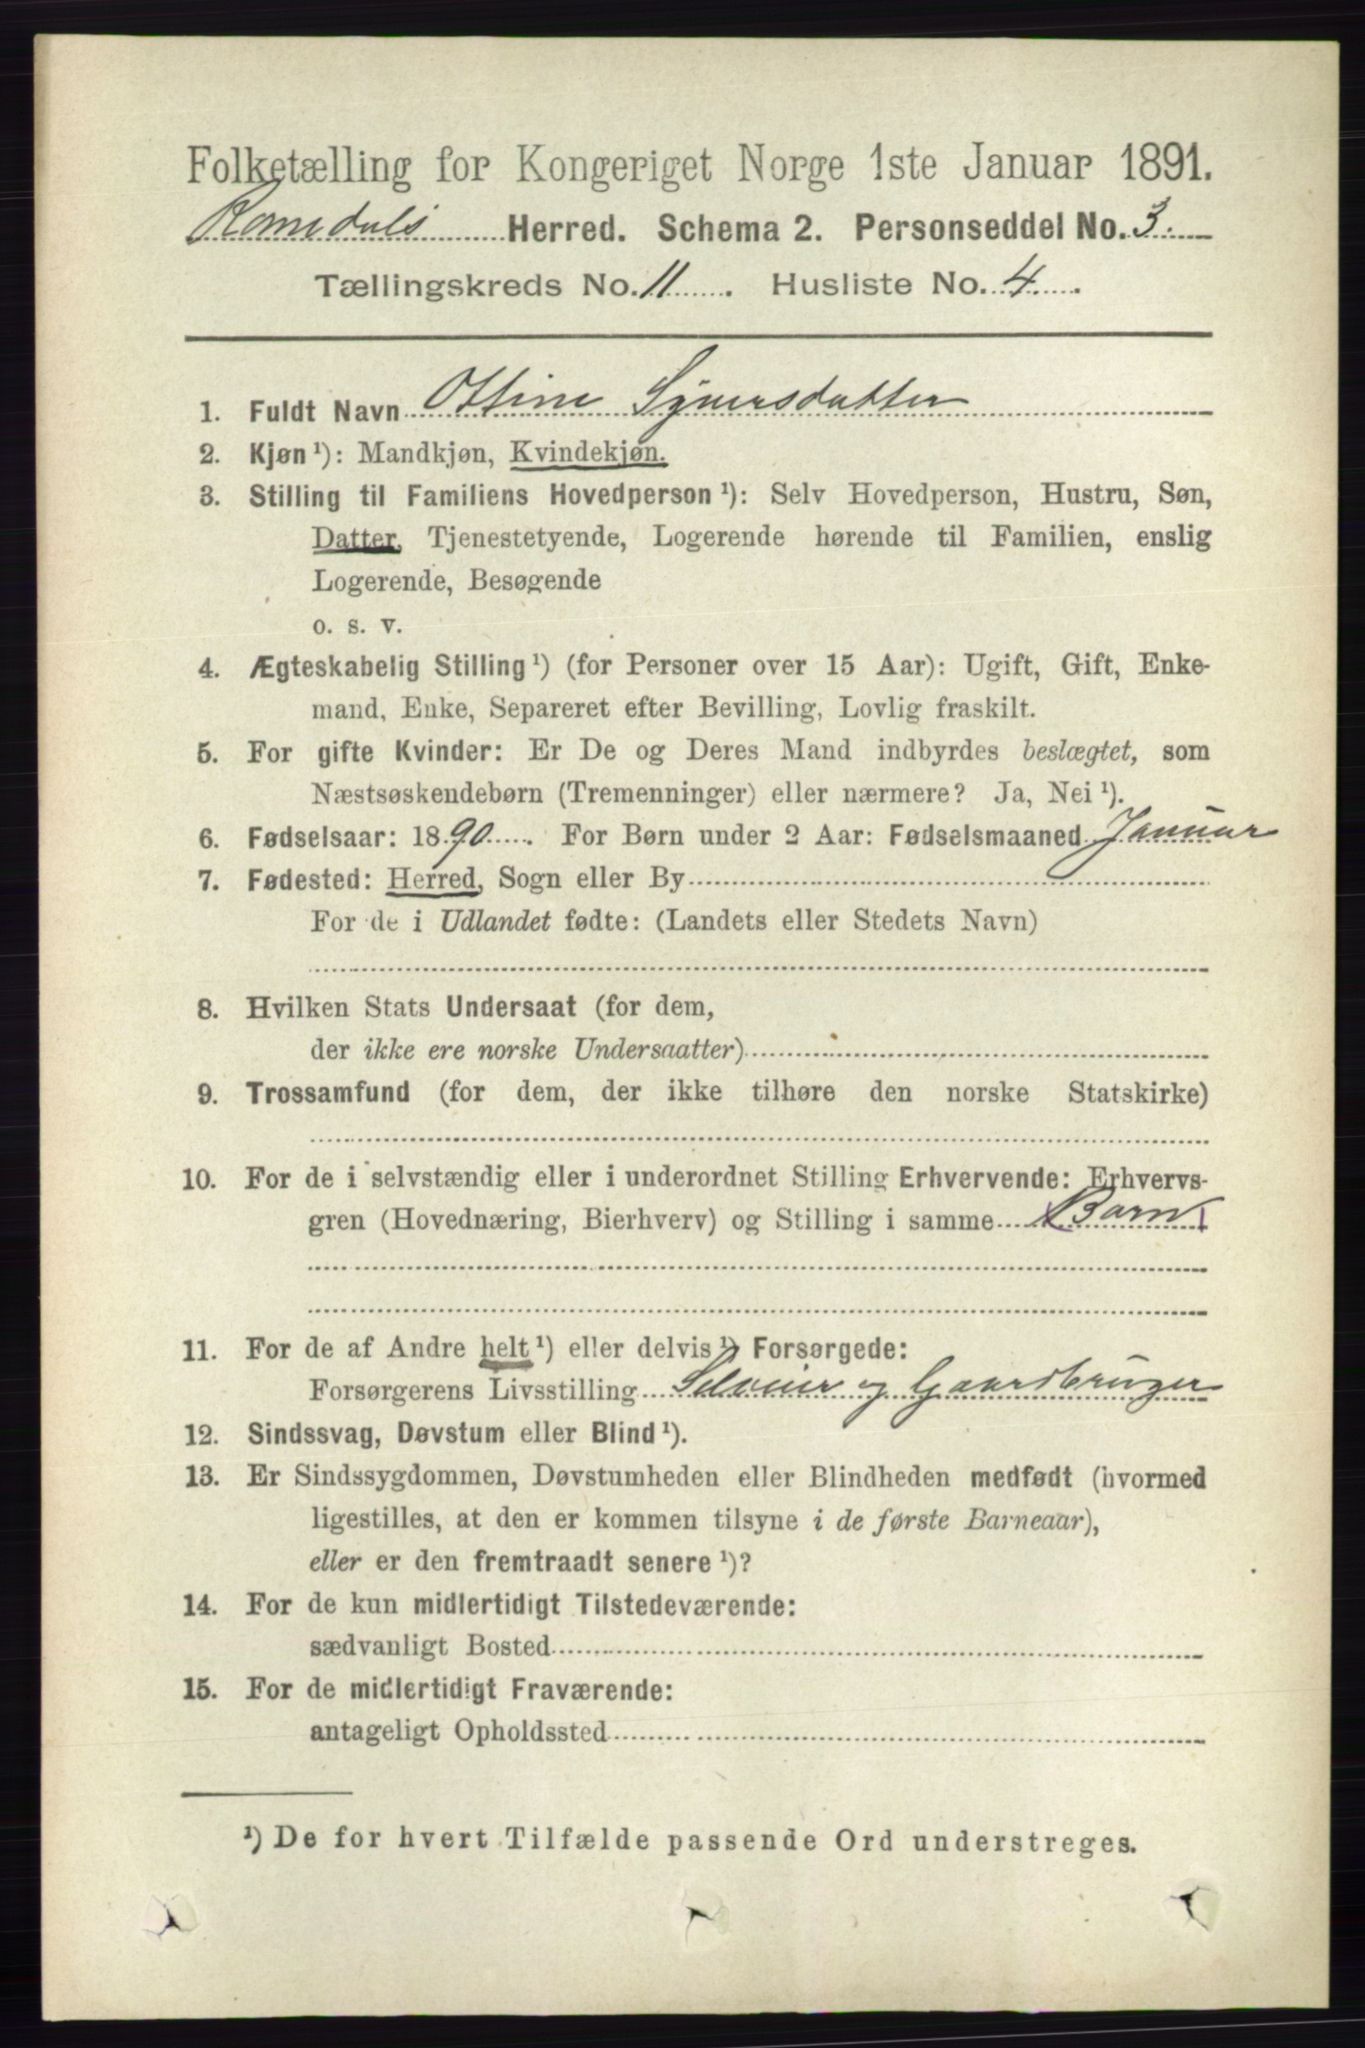 Folketælling for Kongeriget Norge 1ste Januar 1891.
Romedals Herred. Schema 2. Personseddel No. 3.
Tællingskreds No. 11. Husliste No. 4.
1. Fuldt Navn Ottine Syversdatter
2. Kjøn ¹): Mandkjøn, Kvindekjøn.
3. Stilling til Familiens Hovedperson ¹): Selv Hovedperson, Hustru, Søn,
Datter, Tjenestetyende, Logerende hørende til Familien, enslig
Logerende, Besøgende
o. s. v.
4. Ægteskabelig Stilling ¹) (for Personer over 15 Aar): Ugift, Gift, Enke-
mand, Enke, Separeret efter Bevilling, Lovlig fraskilt.
5. For gifte Kvinder: Er De og Deres Mand indbyrdes beslægtet, som
Næstsøskendebørn (Tremenninger) eller nærmere? Ja, Nei ¹).
6. Fødselsaar: 1890. For Børn under 2 Aar: Fødselsmaaned Januar
7. Fødested: Herred, Sogn eller By
For de i Udlandet fødte: (Landets eller Stedets Navn)
8. Hvilken Stats Undersaat (for dem,
der ikke ere norske Undersaatter)
9. Trossamfund (for dem, der ikke tilhøre den norske Statskirke)
10. For de i selvstændig eller i underordnet Stilling Erhvervende: Erhvervs-
gren (Hovednæring, Bierhverv) og Stilling i samme Barn
11. For de af Andre helt ¹) eller delvis ¹) Forsørgede:
Forsørgerens Livsstilling Selveier og Gaardbruger
12. Sindssvag, Døvstum eller Blind ¹).
13. Er Sindssygdommen, Døvstumheden eller Blindheden medfødt (hvormed
ligestilles, at den er kommen tilsyne i de første Barneaar),
eller er den fremtraadt senere ¹)?
14. For de kun midlertidigt Tilstedeværende:
sædvanligt Bosted
15. For de midlertidigt Fraværende:
antageligt Opholdssted
¹) De for hvert Tilfælde passende Ord understreges.